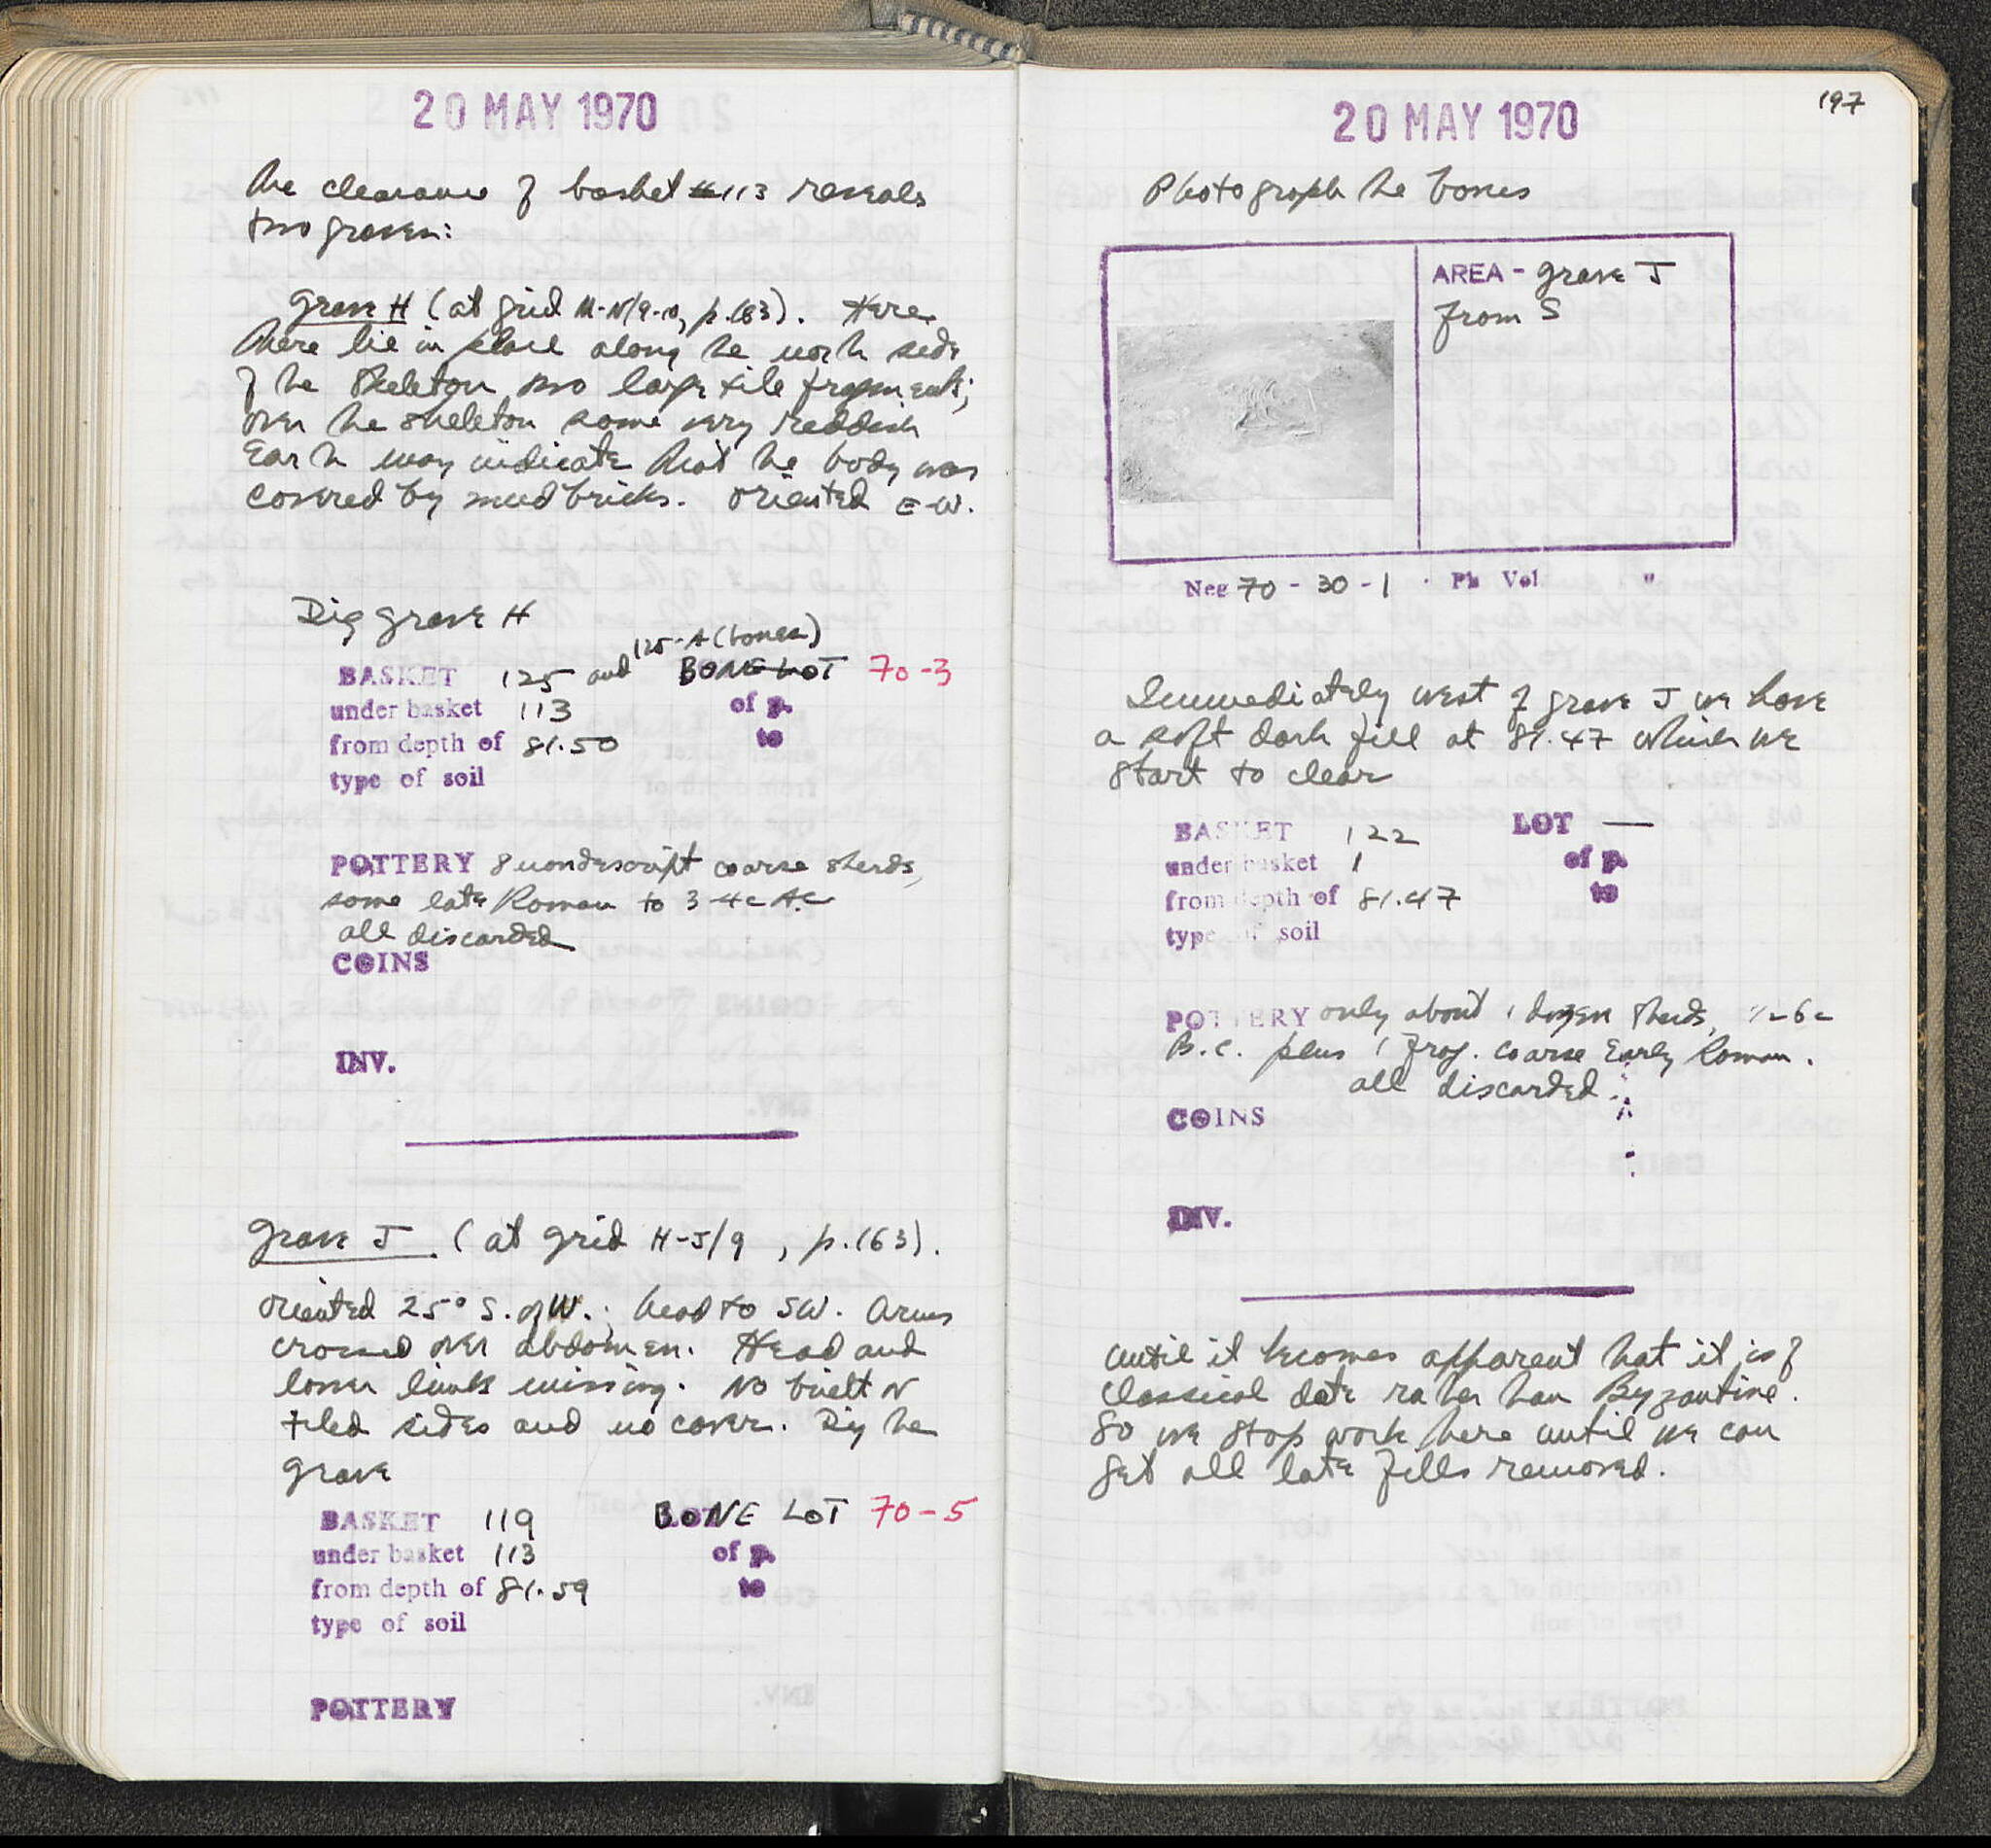 20 MAY 1970
The clearance of basket #113 reveals
two graves:
Grave H (at grid M-N/9-10, p.163). Here
there lie in place along the north side
of the skeleton two large tile fragments;
over the skeleton some very reddish
Earth may indicate that the body was
covered by mudbricks. Oriented E-W.
Dig grave H
125-A (bones)
BASKET 125 and BONE LOT 70-3
under basket 113 of p.
from depth of 81.50 to
type of soil
POTTERY 8 nondescript coarse sherds,
some late Roman to 3-4c AC
all discarded
COINS
INV.
Grave J (at grid H-J/9, p.163).
oriented 25° S. of W.; head to SW. Arms
crossed over abdomen. Head and
lower limbs missing. No built or
tiled sides and no cover. Dig the
grave
BASKET 119 BONE LOT 70-5
under basket 113 of p.
from depth of 81.59 to
type of soil
POTTERY
197
20 MAY 1970
Photograph the bones
AREA - grave J
from S
Neg 70 - 30 - 1 Ph Vol. "
Immediately west of grave J we have
a soft dark fill at 81.47 which we
start to clear
BASKET 122 LOT —
under basket 1 of p.
from depth of 81.47 to
type of soil
POTTERY only about 1 dozen sherds, 6c
B.C. plus 1 frag. coarse Early Roman.
all discarded.
COINS
INV.
until it becomes apparent that it is of
Classical date rather than Byzantine.
So we stop work here until we can
get all late fills removed.